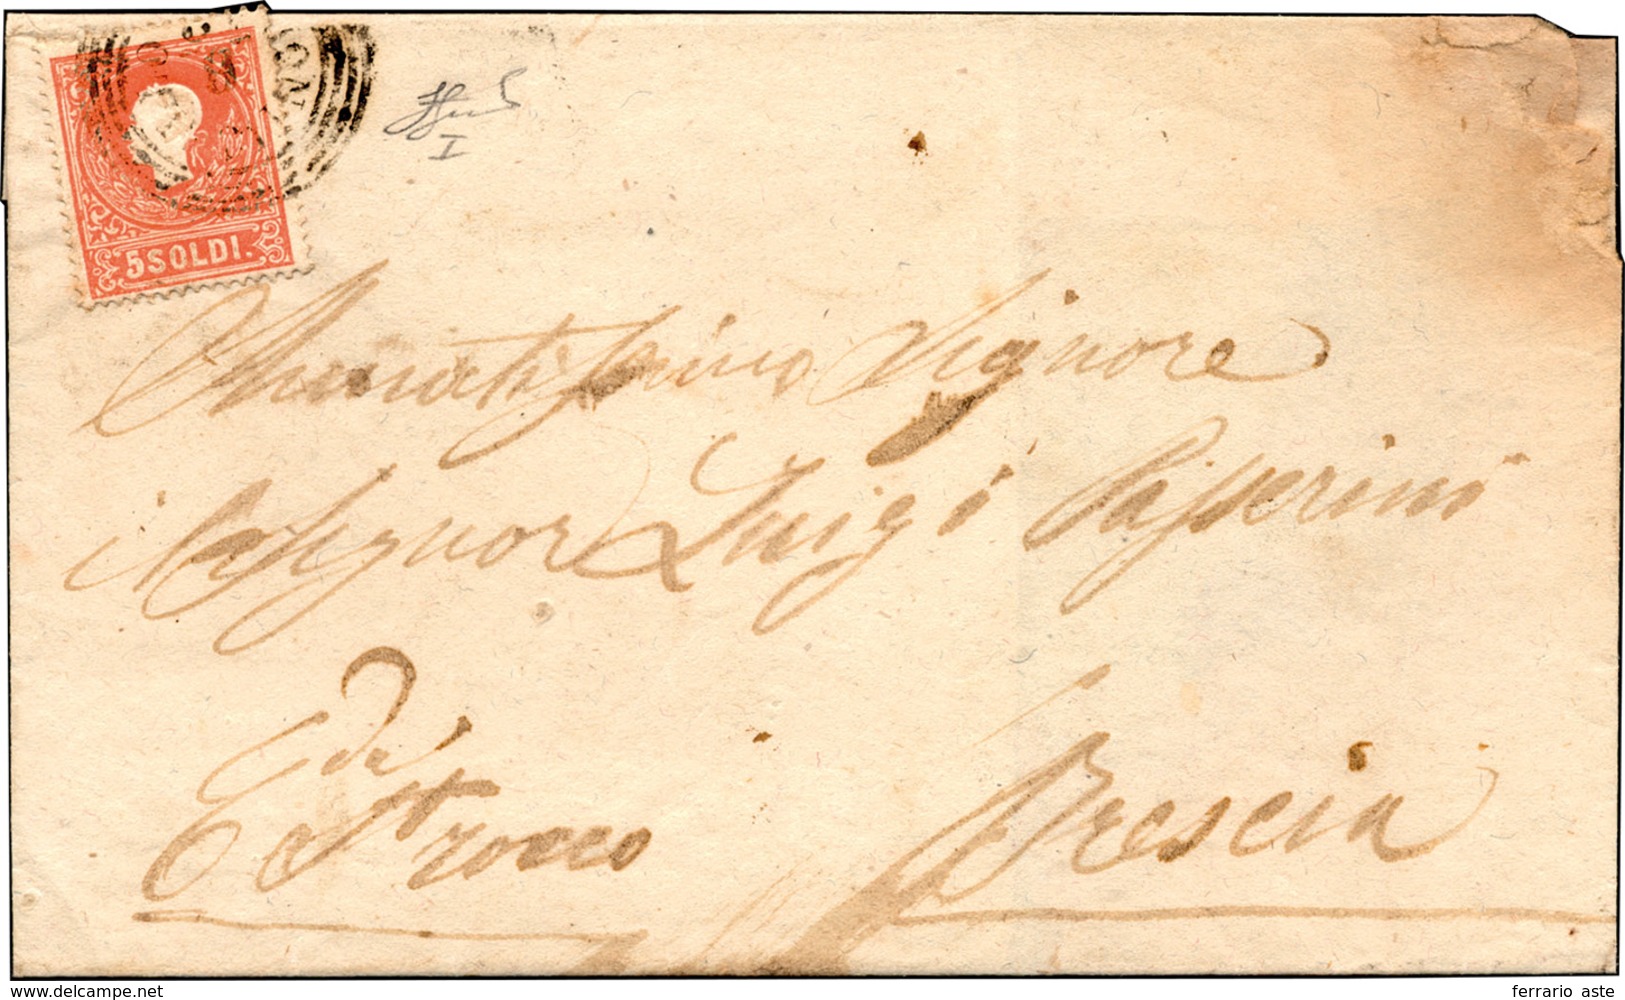 5 SOLDI.
I
Ornatissimo Signore
Il Signor Luigi Passerini
di
Brescia
www.delcampe.net
ferrario aste